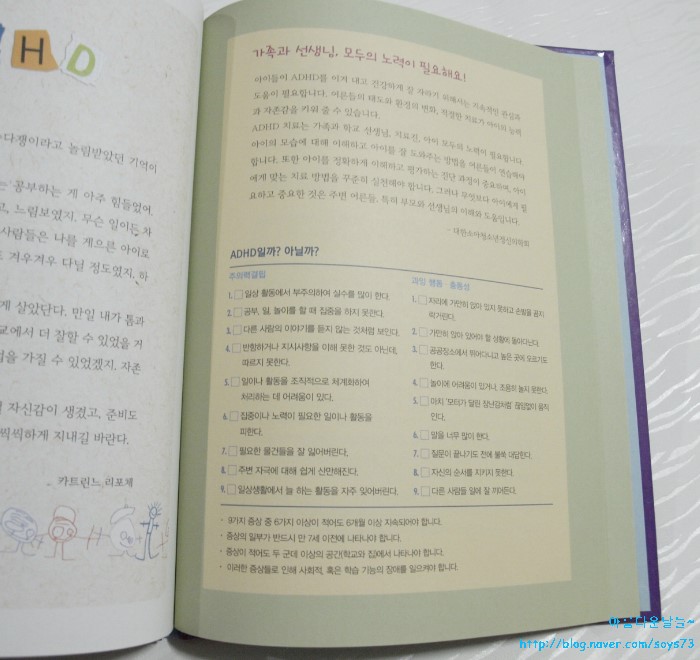 HD
다쟁이라고 놀림받았던 기억이
공부하는 게 아주 힘들었어.
고, 느림보였지. 무슨 일이든 차
사람들은 나를 게으른 아이로
겨우겨우 다닐 정도였지. 하
게 살았단다. 만일 내가 톰과
교에서 더 잘할 수 있었을 거
업을 가질 수 있었겠지. 자존
자신감이 생겼고, 준비도
씩씩하게 지내길 바란다.
카트린느 리포체
가족과 선생님, 모두의 노력이 필요해요!
아이들이 ADHD를 이겨 내고 건강하게 잘 자라기 위해서는 지속적인 관심과
도움이 필요합니다. 어른들의 태도와 환경의 변화, 적절한 치료가 아이의 능력
과 자존감을 키워 줄 수 있습니다.
ADHD 치료는 가족과 학교 선생님, 치료진, 아이 모두의 노력이 필요합니다.
아이의 모습에 대해 이해하고 아이를 잘 도와주는 방법을 어른들이 연습해야
합니다. 또한 아이를 정확하게 이해하고 평가하는 진단 과정이 중요하며, 아이
에게 맞는 치료 방법을 꾸준히 실천해야 합니다. 그러나 무엇보다 아이에게 필
요하고 중요한 것은 주변 어른들, 특히 부모와 선생님의 이해와 도움입니다.
- 대한소아청소년정신의학회
ADHD일까? 아닐까?
주의력결핍
1. 일상 활동에서 부주의하여 실수를 많이 한다.
2. 공부, 일, 놀이를 할 때 집중을 하지 못한다.
3. 다른 사람의 이야기를 듣지 않는 것처럼 보인다.
4. 반항하거나 지시사항을 이해 못한 것도 아닌데,
따르지 못한다.
5. 일이나 활동을 조직적으로 체계화하여
처리하는 데 어려움이 있다.
6. 집중이나 노력이 필요한 일이나 활동을
피한다.
7. 필요한 물건들을 잘 잃어버린다.
8. 주변 자극에 대해 쉽게 산만해진다.
9. 일상생활에서 늘 하는 활동을 자주 잊어버린다.
과잉 행동 · 충동성
1. 자리에 가만히 앉아 있지 못하고 손발을 꼼지
락거린다.
2. 가만히 앉아 있어야 할 상황에 돌아다닌다.
3. 공공장소에서 뛰어다니고 높은 곳에 오르기도
한다.
4. 놀이에 어려움이 있거나, 조용히 놀지 못한다.
5. 마치 '모터가 달린 장난감처럼' 끊임없이 움직
인다.
6. 말을 너무 많이 한다.
7. 질문이 끝나기도 전에 불쑥 대답한다.
8. 자신의 순서를 지키지 못한다.
9. 다른 사람들 일에 잘 끼어든다.
· 9가지 증상 중 6가지 이상이 적어도 6개월 이상 지속되어야 합니다.
· 증상의 일부가 반드시 만 7세 이전에 나타나야 합니다.
· 증상이 적어도 두 군데 이상의 공간(학교와 집)에서 나타나야 합니다.
· 이러한 증상들로 인해 사회적, 혹은 학습 기능의 장애를 일으켜야 합니다.
아름다운날들~
http://blog.naver.com/soys73